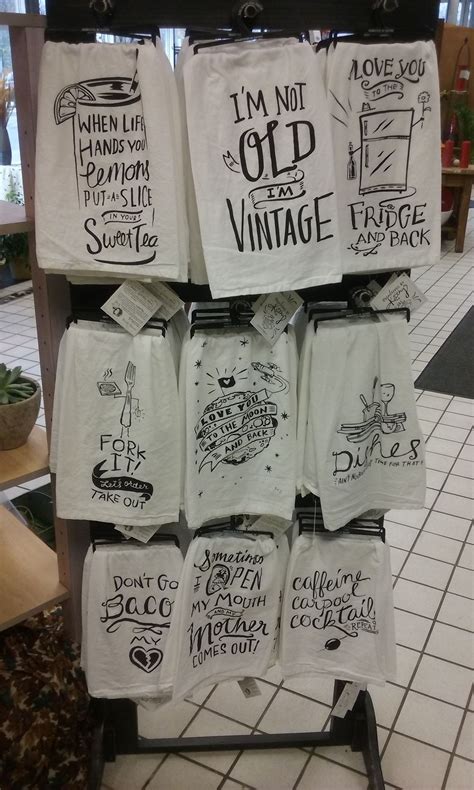 WHEN LIFE
HANDS YOU
lemons
PUT A SLICE
IN YOUR
SWEET TEA
I'M NOT
OLD
I'M
VINTAGE
I LOVE YOU
TO THE
FRIDGE
AND BACK
FORK
IT!
Let's order
TAKE OUT
I LOVE YOU
TO THE MOON
AND BACK
Dishes
AIN'T NOBODY GOT TIME FOR THAT!
DON'T GO
BACON
MY
Sometimes
I OPEN
MY MOUTH
AND MY
Mother
COMES OUT!
caffeine
carpool
cocktail
REPEAT